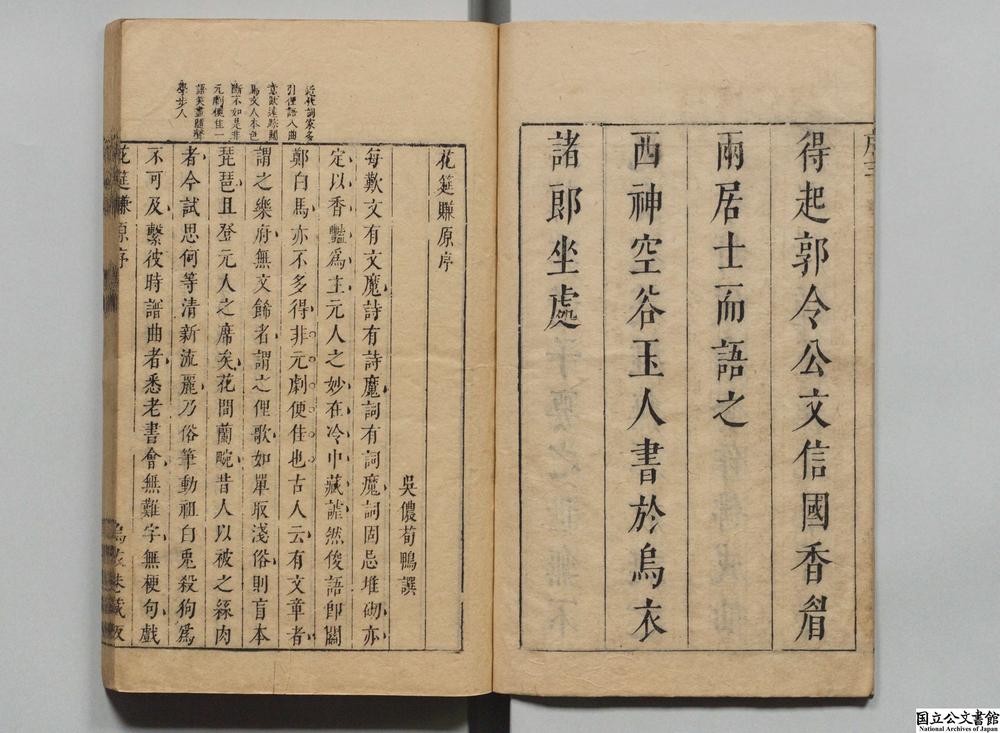 得起郭令公文信國香眉
兩居士而語之
西神空谷玉人書於烏衣
諸郎坐處
花筵賺原序
吳儂荀鴨譔
每歎文有文魔詩有詩魔詞有詞魔詞固忌堆砌亦
定以香豔爲主元人之妙在冷中藏謔然俊語卽關
鄭白馬亦不多得非元劇便佳也古人云有文章者
謂之樂府無文餙者謂之俚歌如單取淺俗則盲本
琵琶且登元人之席矣花間蘭畹昔人以被之絲肉
者今試思何等清新流麗乃俗筆動祖白兎殺狗爲
不可及繫彼時譜曲者悉老書會無難字無梗句戲
近代詞家多
引俚語入曲
馬文人本色
斷不如是非
元劇便佳一
學步人
花筵賺原序
国立公文書館
National Archives of Japan